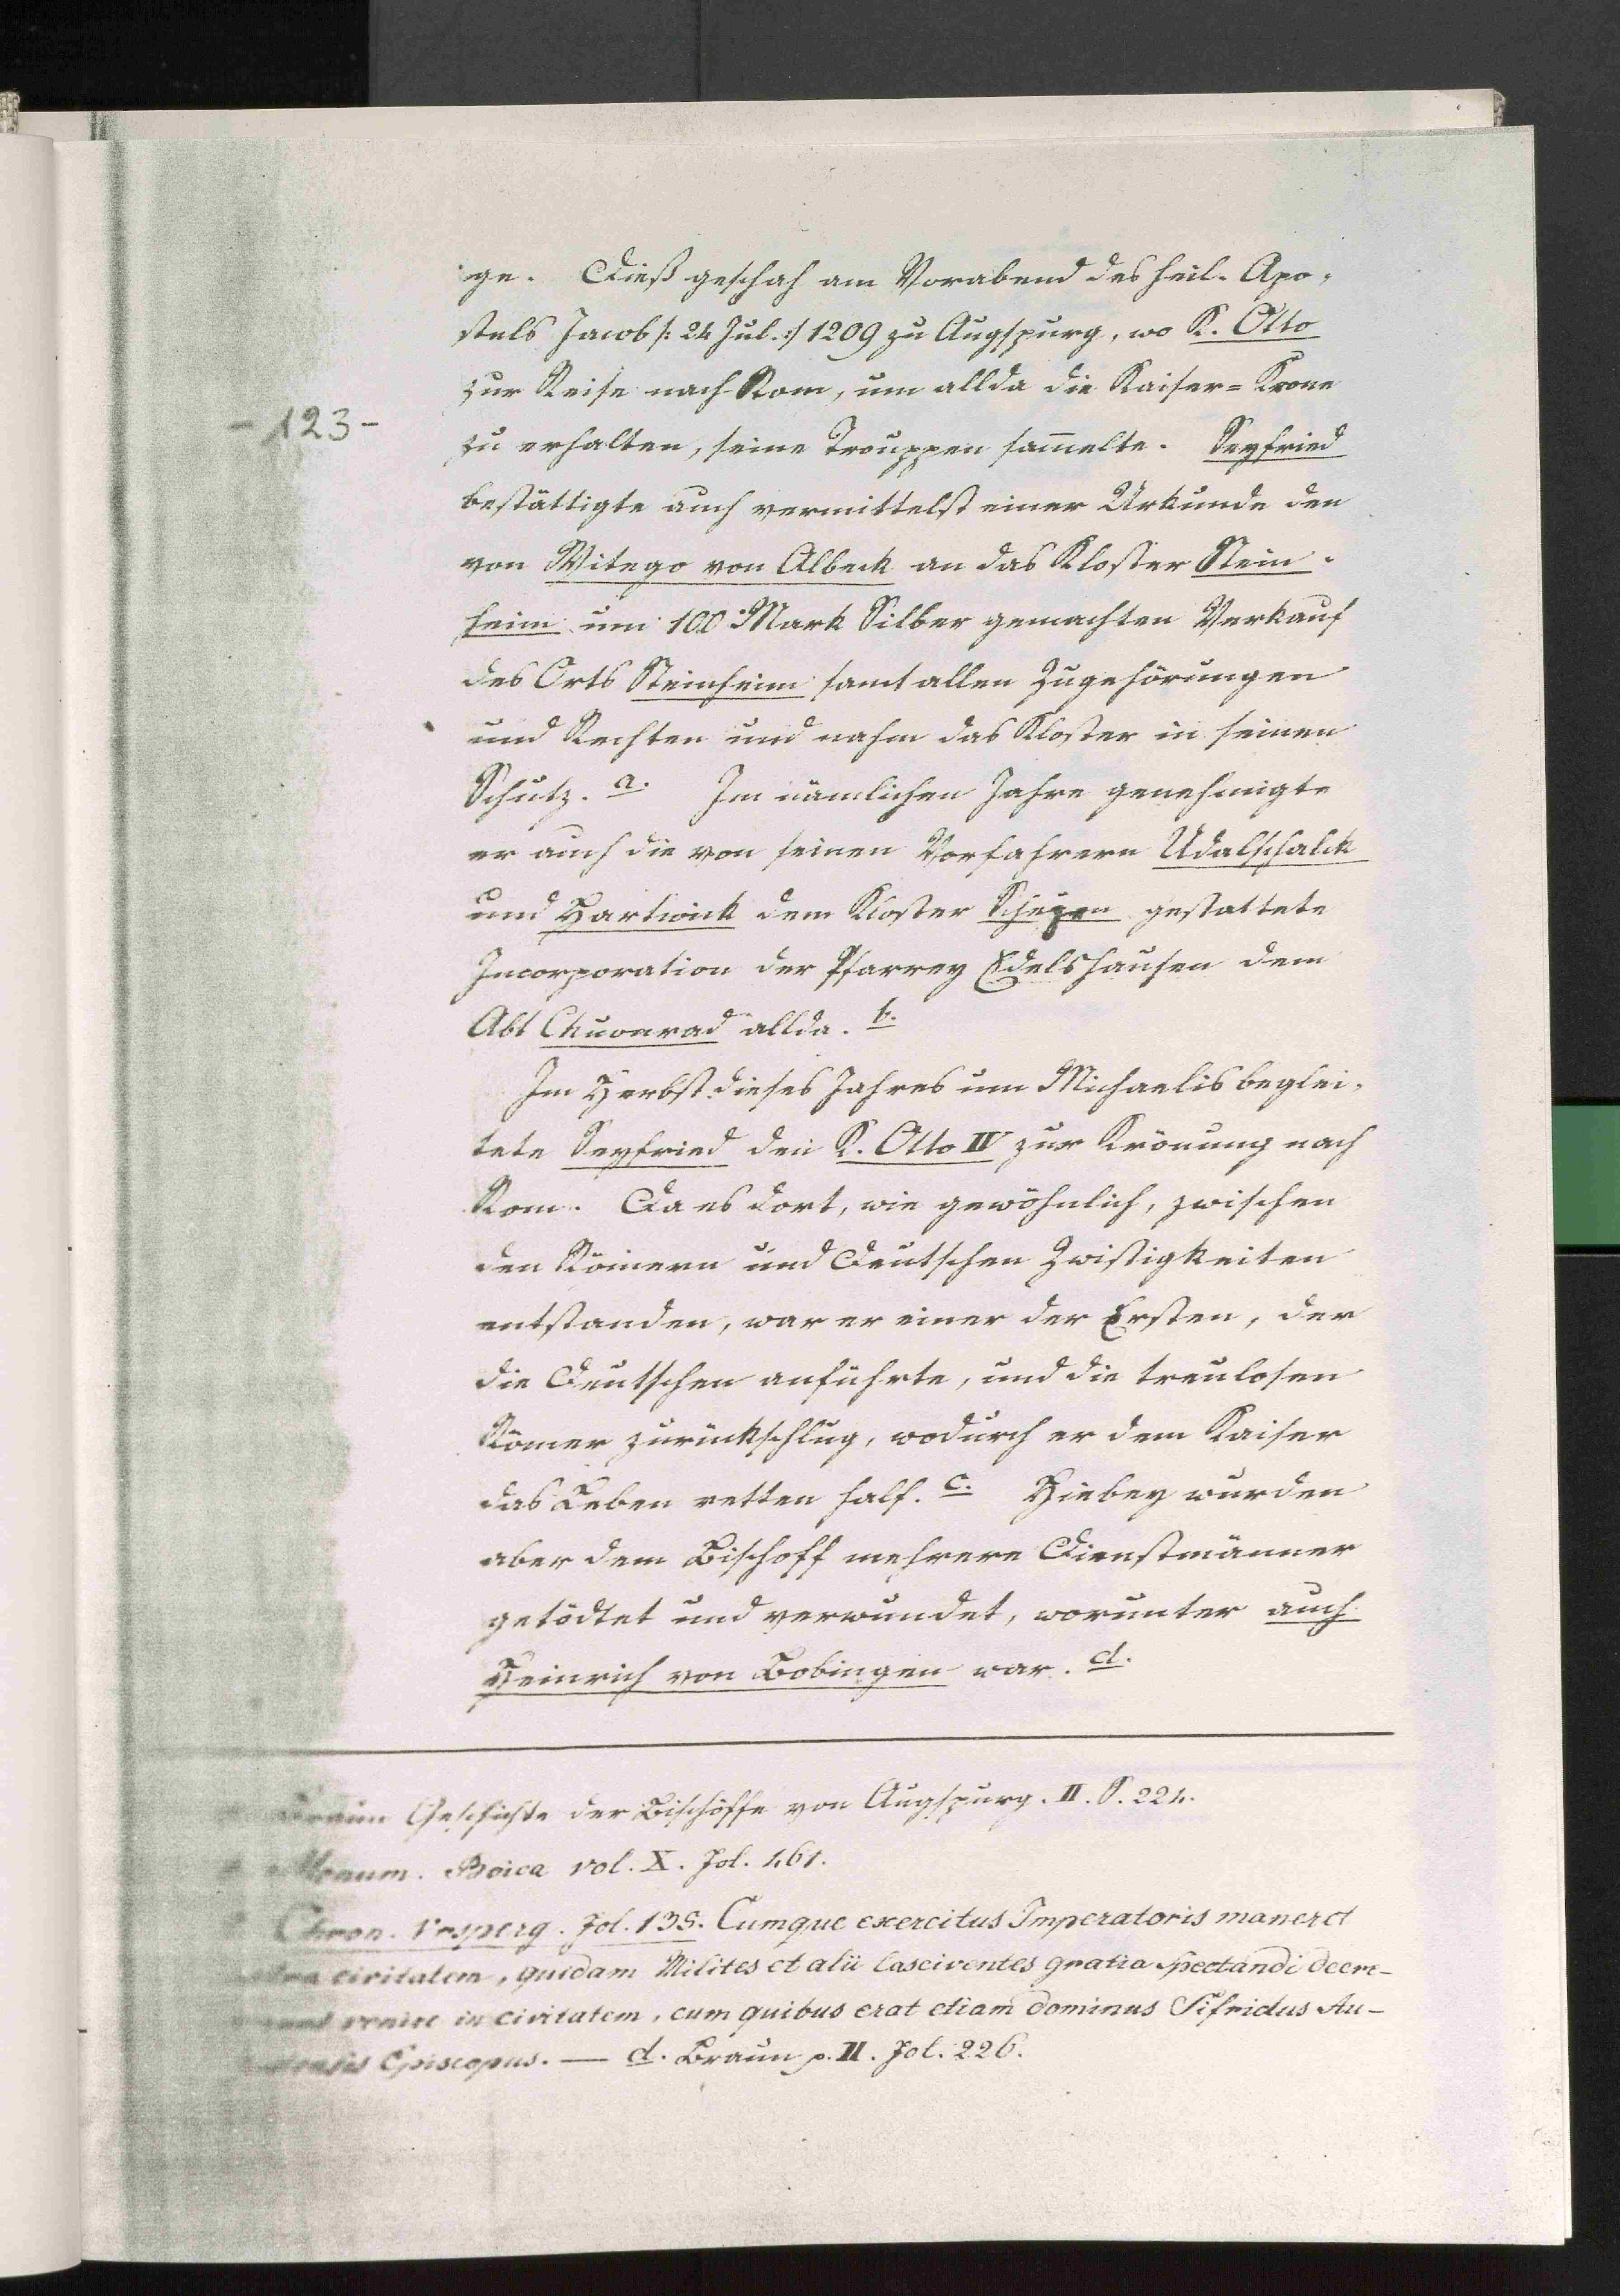 ge. Dieß geschah am Vorabend des heil. Apo-
stels Jacob /: 24 Jul. :/ 1209 zu Augspurg, wo K. Otto
zur Reise nach Rom, um allda die Kaiser=Krone
- 123 -
zu erhalten, seine Trouppen sam̄elte. Seyfried
bestättigte auch vermittelst einer Urkunde den
von Witego von Albeck an das Kloster Stein-
heim um 100 Mark Silber gemachten Verkauf
des Orts Steinheim samt allen Zugehörungen
und Rechten und nahm das Kloster in seinen
Schutz. a. Im nämlichen Jahre genehmigte
er auch die von seinen Vorfahrern Udalschalck
und Hartwick dem Kloster Scheyern gestattete
Incorporation der Pfarrey Edelshausen dem
Abt Chuonrad allda. b.
Im Herbst dieses Jahres um Michaelis beglei-
tete Seyfried den K. Otto IV zur Krönung nach
Rom. Da es dort, wie gewöhnlich, zwischen
den Römern und Deutschen Zwistigkeiten
entstanden, war er einer der Ersten, der
die Deutschen anführte, und die treulosen
Römer zurückschlug, wodurch er dem Kaiser
das Leben retten half. c. Hiebey wurden
aber dem Bischoff mehrere Dienstmänner
getödtet und verwundet, worunter auch
Heinrich von Bobingen war. d.
Braun Geschichte der Bischöffe von Augspurg. II. S. 224.
Monum. Boica vol. X. fol. 461.
Chron. Ursperg. fol. 135. Cumque exercitus Imperatoris maneret
civitatem, quidam Milites et alii lasciventes gratia spectandi decre-
venire in civitatem, cum quibus erat etiam dominus Sifridus Au-
Episcopus. — d. Braun p. II. fol. 226.